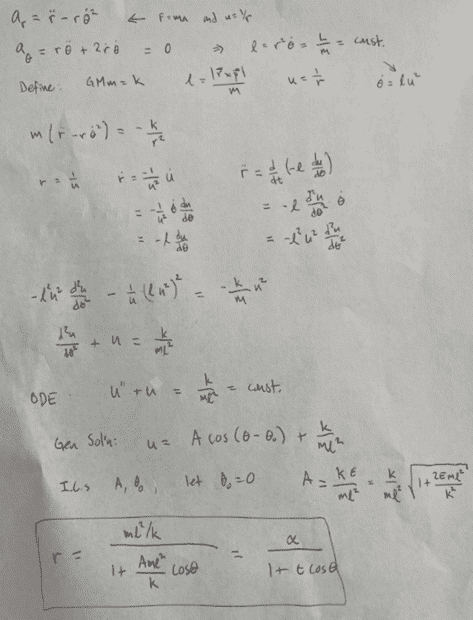 a_r = r̈ - rθ̇² ← F=ma and u=1/r
a_θ = rθ̈ + 2ṙθ̇ = 0 ⇒ l = r²θ̇ = L/m = const.
Define: GMm = k l = |r⃗×p⃗|/m u = 1/r θ̇ = lu²
m(r̈ - rθ̇²) = -k/r²
r = 1/u ṙ = -1/u² u̇ r̈ = d/dt (-l du/dθ)
= -1/u² θ̇ du/dθ = -l d²u/dθ² θ̇
= -l du/dθ = -l²u² d²u/dθ²
-l²u² d²u/dθ² - 1/u (lu²)² = -k/m u²
d²u/dθ² + u = k/ml²
ODE: u'' + u = k/ml² = const.
Gen Sol'n: u = A cos(θ-θ₀) + k/ml²
I.C.s A, θ₀, let θ₀=0 A = kε/ml² = k/ml² √(1 + 2Eml²/k²)
r = (ml²/k)/(1 + Aml²/k cosθ) = α/(1 + ε cosθ)